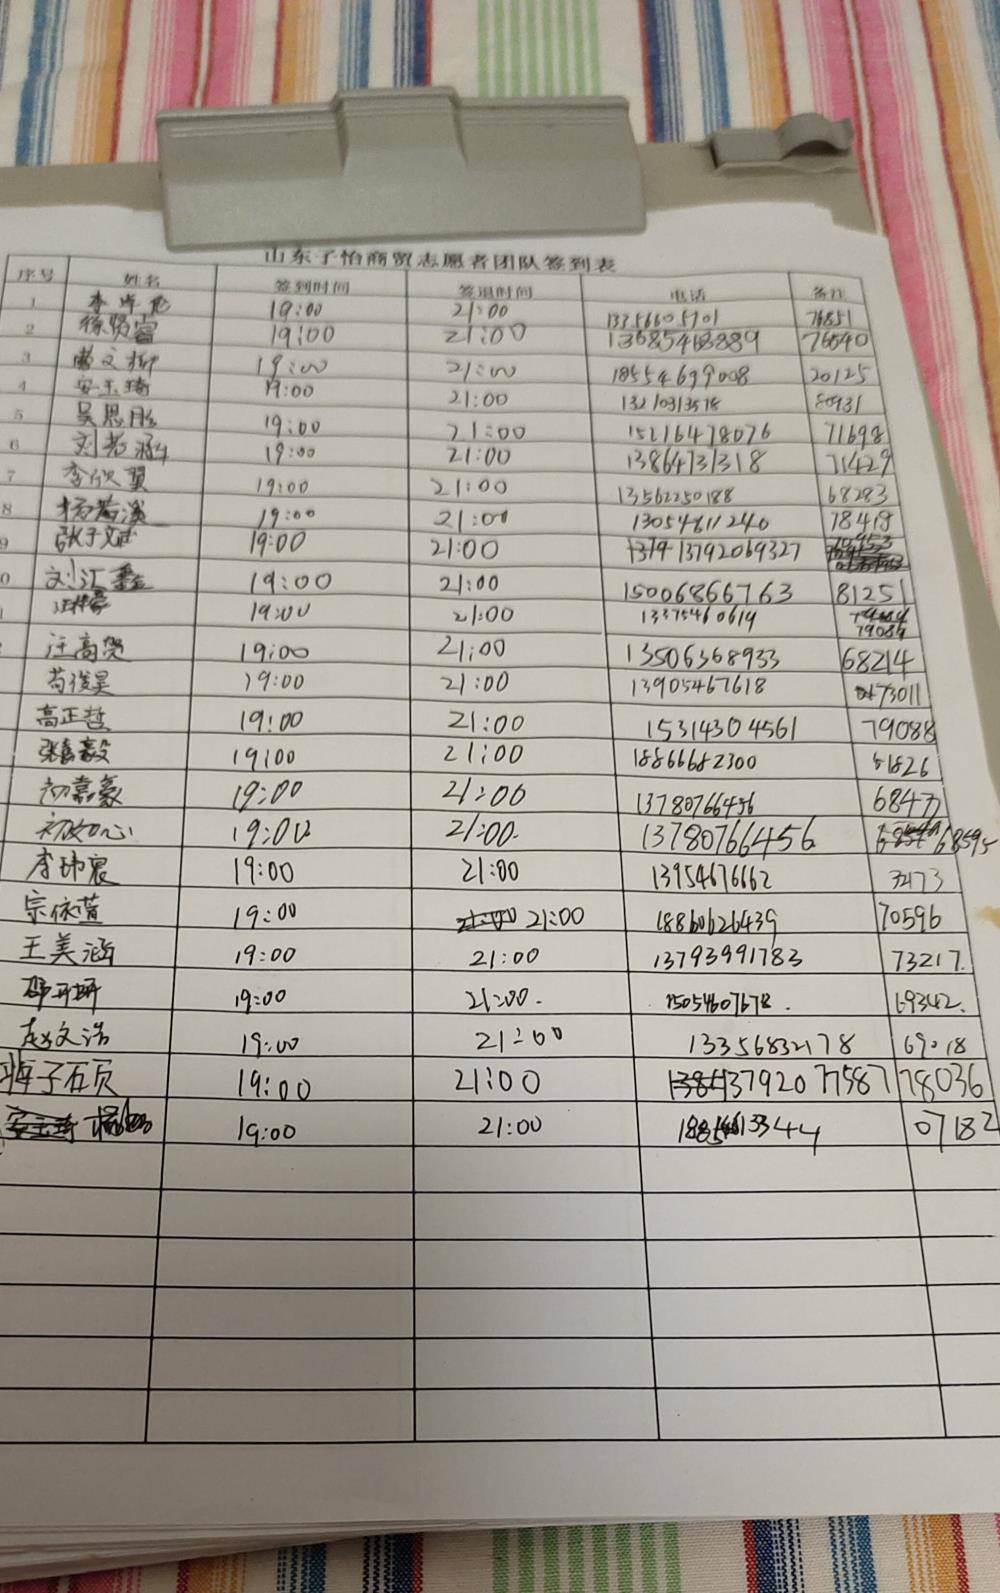 山东子怡商贸志愿者团队签到表
序号 姓名 签到时间 签退时间 电话 备注
1 19:00 21:00 13356605701 76851
2 徐贤睿 19:00 21:00 76540
3 曹文柳 19:00 21:00 18554699008 20125
4 安玉琦 19:00 21:00 13210313518 80931
5 吴思彤 19:00 21:00 15216478076 71698
6 刘若涵 19:00 21:00 13864731318 71429
7 李欣翼 19:00 21:00 13562250188 68283
8 杨若溪 19:00 21:00 13054811240 78418
9 张子文 19:00 21:00 13792069327
0 刘汇鑫 19:00 21:00 15006866763 81251
19:00 21:00 13375460614 79084
汪高贺 19:00 21:00 13506368933 68214
苟俊昊 19:00 21:00 13905467618 73011
高正哲 19:00 21:00 15314304561 79088
张嘉毅 19:00 21:00 18866682300 81826
初嘉豪 19:00 21:00 13780766456 6847
初如心 19:00 21:00. 13780766456 68595
李玮宸 19:00 21:00 13954676662
宗依萱 19:00 21:00 18860626439 70596
王美涵 19:00 21:00 13793991783 73217.
邵开妍 19:00 21:00. 15054607678. 69342.
赵文浩 19:00 21:00 13356832178 69018
19:00 21:00 13792077587 78036
19:00 21:00 07182